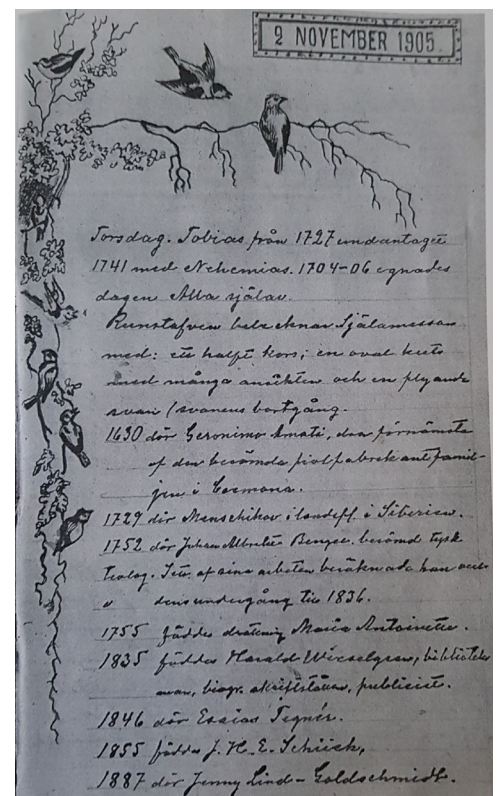 2 NOVEMBER 1905.
Torsdag. Tobias från 1727 undantaget
1741 med Nehemias. 1704-06 egnades
dagen Alla själar.
Runstafven betecknar Själamessan
med: ett halft kors; en oval krets
med många ansikten och en flyende
svan (svanens bortgång.
1630 dör Geronimo Amati, den förnämsta
af den berömda fiolfabrikantfamil-
jen i Cremona.
1729 dör Menschikov i landsfl. i Siberien.
1752 dör Johan Albrekt Bengel, berömd tysk
teolog. I ett af sina arbeten beräknade han
dens undergång till 1836.
1755 föddes drottning Maria Antoinette.
1835 föddes Harald Wieselgren, biblioteks
man, biogr. skriftställare, publicist.
1846 dör Essias Tegnér.
1855 föddes J. H. E. Schück,
1887 dör Jenny Lind-Goldschmidt.